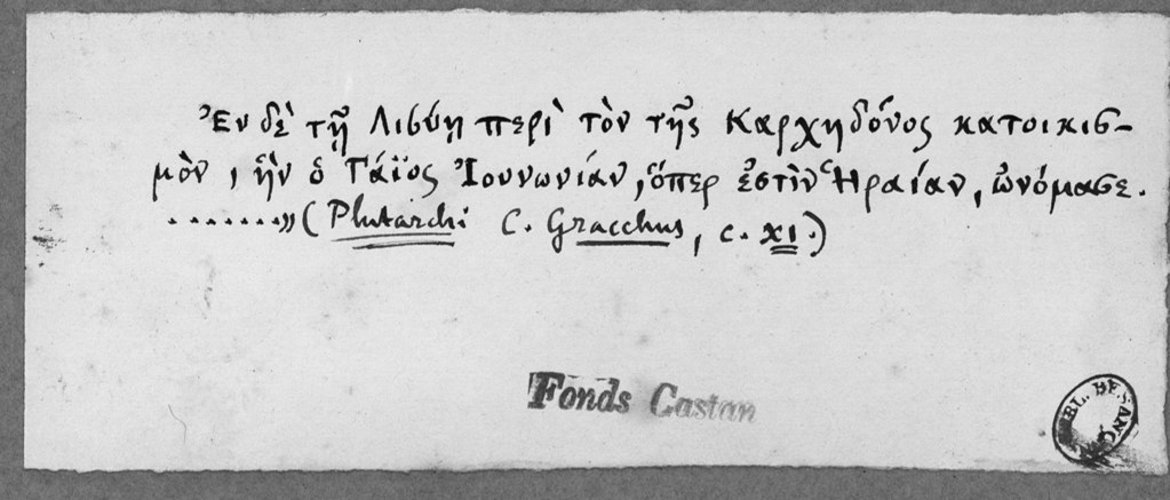 Ἐν δὲ τῇ Λιβύῃ περὶ τὸν τῆς Καρχηδόνος κατοικισ-
μὸν, ἣν ὁ Γάϊος Ἰουνωνίαν, ὅπερ ἐστὶν Ἡραίαν, ὠνόμασε.
........» (Plutarchi C. Gracchus, c. XI.)
Fonds Castan
BL. BESANÇ